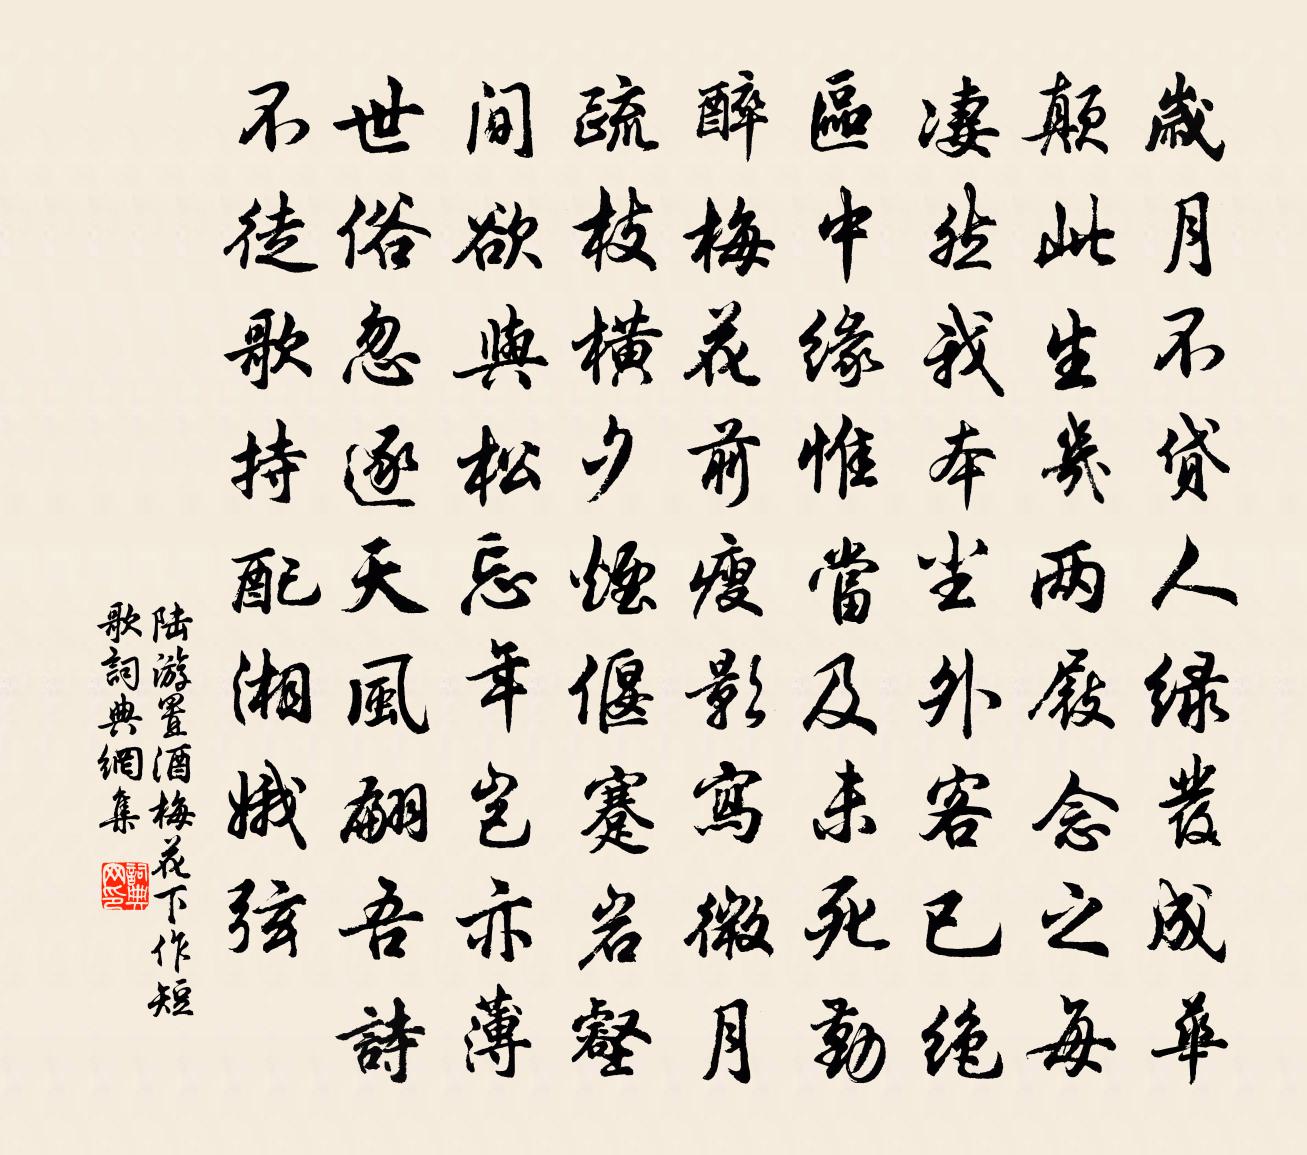 歲月不貸人綠發成華
顛此生幾兩屐念之每
淒然我本塵外客已絕
區中緣惟當及未死勤
醉梅花前瘦影寫微月
疏枝橫夕煙偃蹇岩壑
間欲與松忘年豈亦薄
世俗忽逐天風翩吾詩
不徒歌持配湘娥弦
陆游置酒梅花下作短
歌詞典網集
詞典
网印